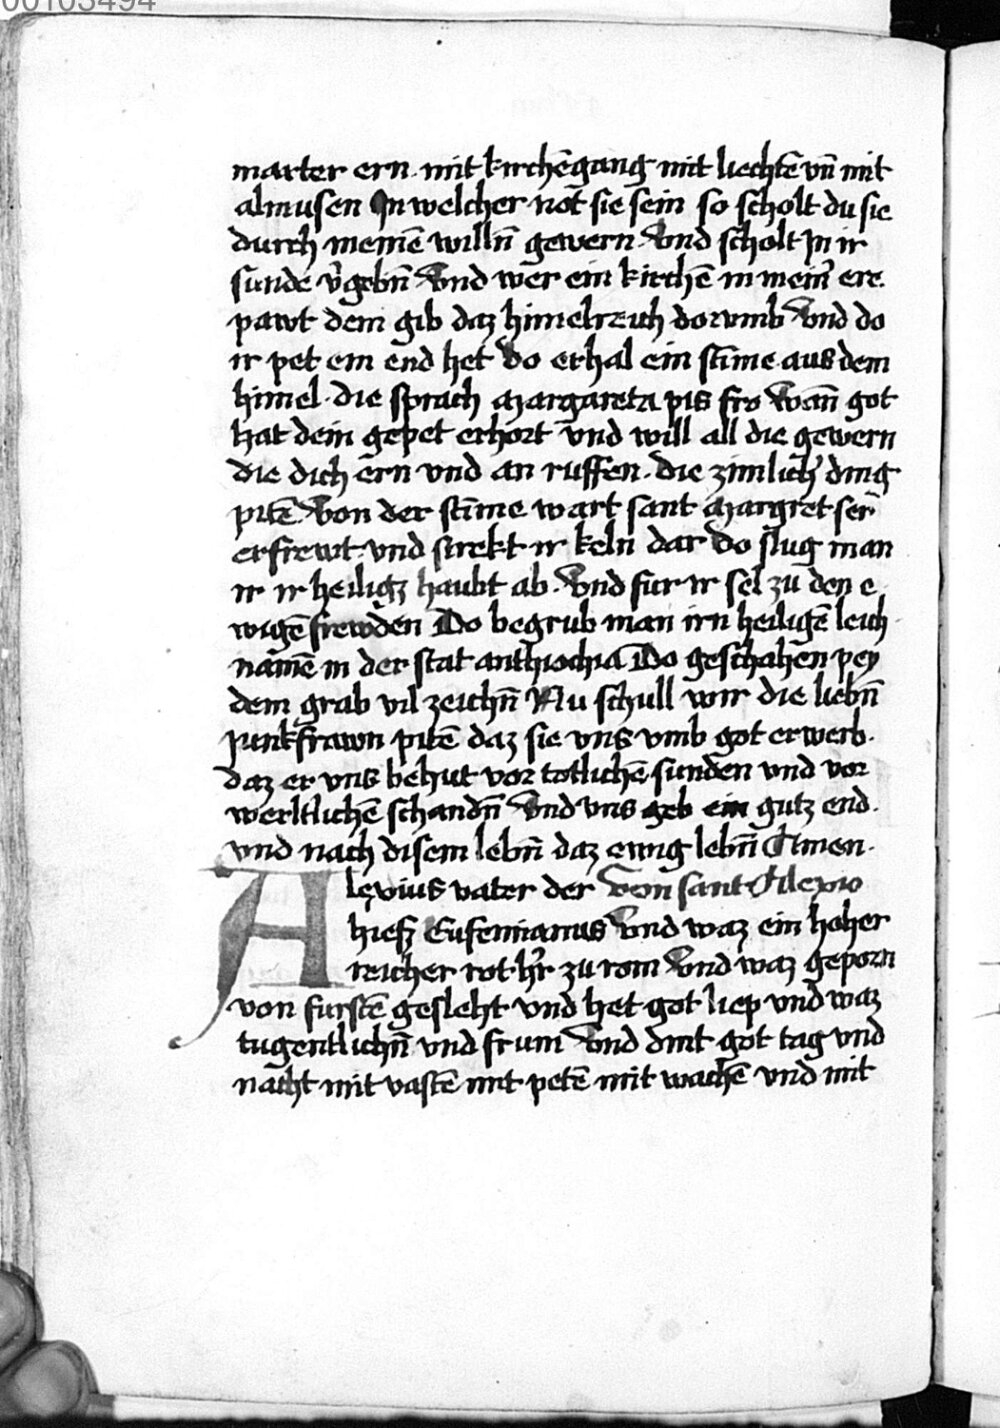 00103494
marter ern. mit kirchēgang mit liechtē vn̄ mit
almusen In welcher not sie sein so scholt du sie
durch meinē willn̄ gewern. Vnd scholt In ir
sunde v̓gebn̄ Vnd wer ein kirchē in mein̓ ere.
pawt dem gib daz himelreich dorvmb Vnd do
ir pet ein end het Do erhal ein stīme aus dem
himel. die sprach Margareta pis fro Wan̄ got
hat dein gepet erhort vnd will all die gewern
die dich ern vnd an ruffen. die zimlich̓ ding
pitē Von der stīme wart sant Margret ser
erfrewt. vnd strekt ir keln dar Do slug man
ir ir heiligz haubt ab. Vnd fur ir sel zu den e
wigē frewden Do begrub man irn heiligē leich
namē in der stat anthiochia Do geschahen pey
dem grab vil zeichn̄ Nu schull wir die liebn̄
junkfrawn pitē daz sie vns vmb got erwerb.
daz er vns behut vor totlichē sunden vnd vor
werltlichē schandn̄ Vnd vns geb ein gutz end.
vnd nach disem lebn̄ daz ewig lebn̄ Amen.
Alexius vater der Von sant Alexio
hiesz Eufemianus Vnd waz ein hoher
reicher rot h̓r zu rom Vnd waz geporn
von furstē gesleht vnd het got liep vnd waz
tugentlichn̄ vnd frum Vnd dint got tag vnd
nacht mit vastē mit petē mit wachē vnd mit